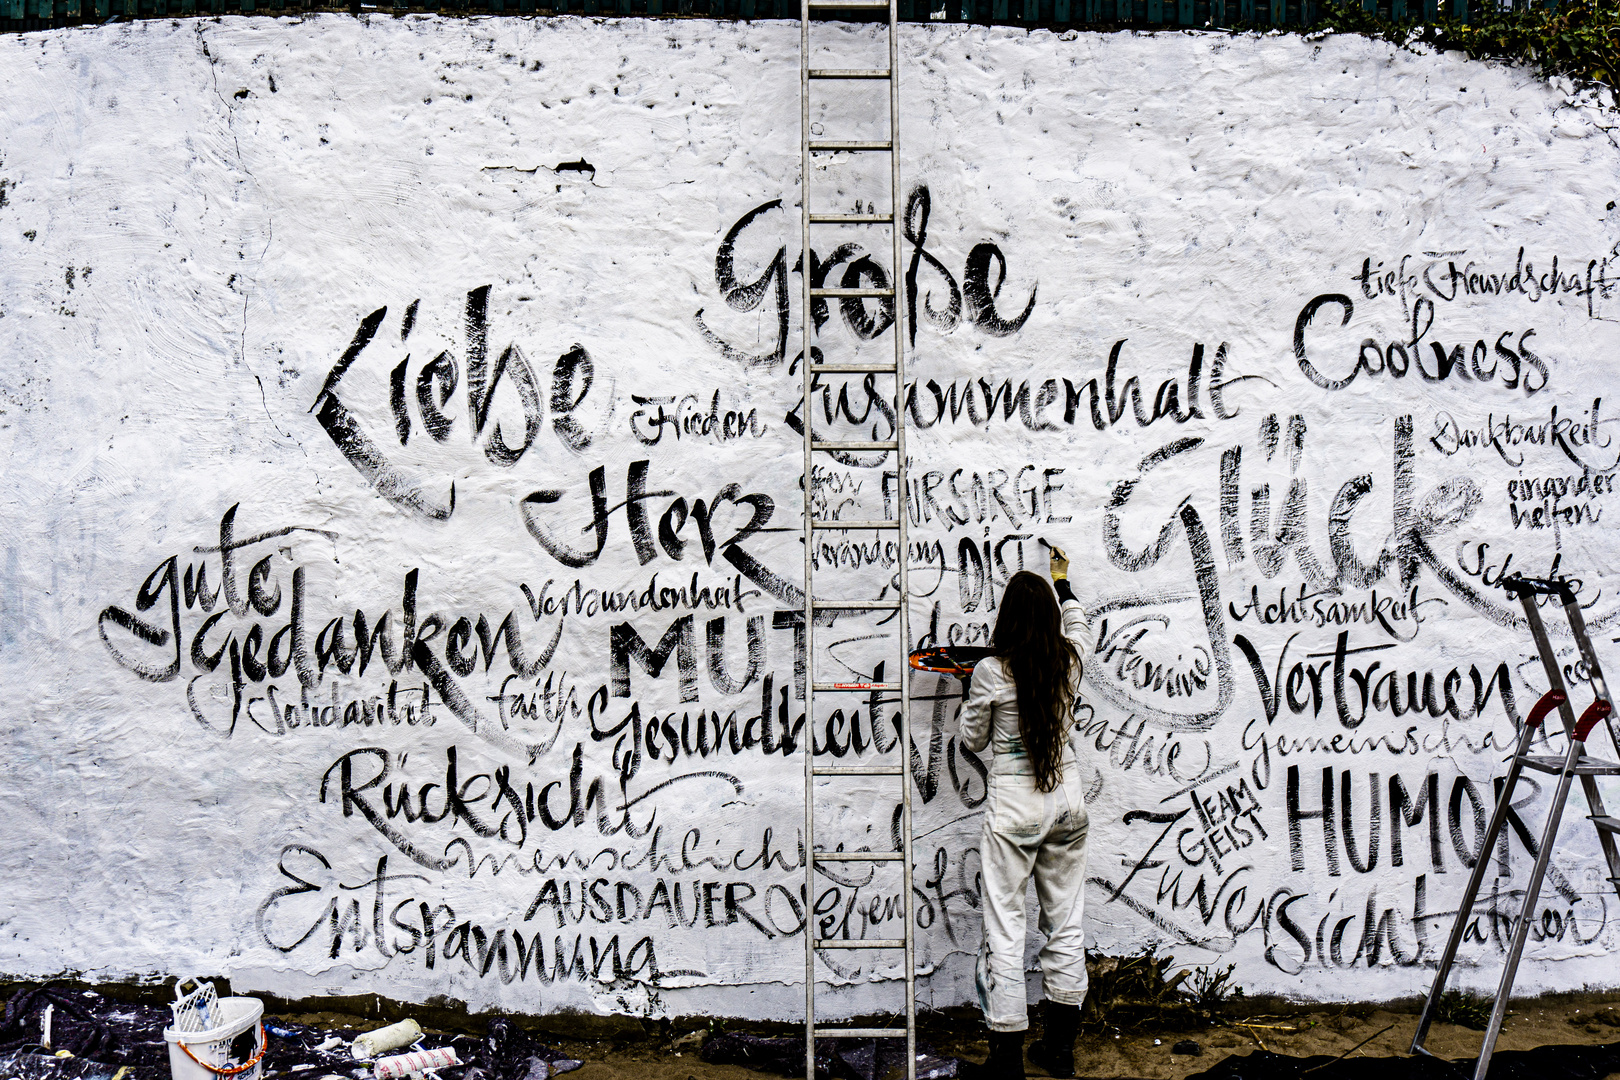 Große
tiefe Freundschaft
Liebe
Coolness
Frieden
Zusammenhalt
Dankbarkeit
Glück
Herz
FÜRSORGE
einander
helfen
Veränderung
DIST
gute
Gedanken
Verbundenheit
Achtsamkeit
MUT
Vitamine
Vertrauen
Solidarität
faith
Gesundheit
Rücksicht
TEAM
GEIST
HUMOR
Menschlichkeit
Zuversicht
Entspannung
AUSDAUER
atmen